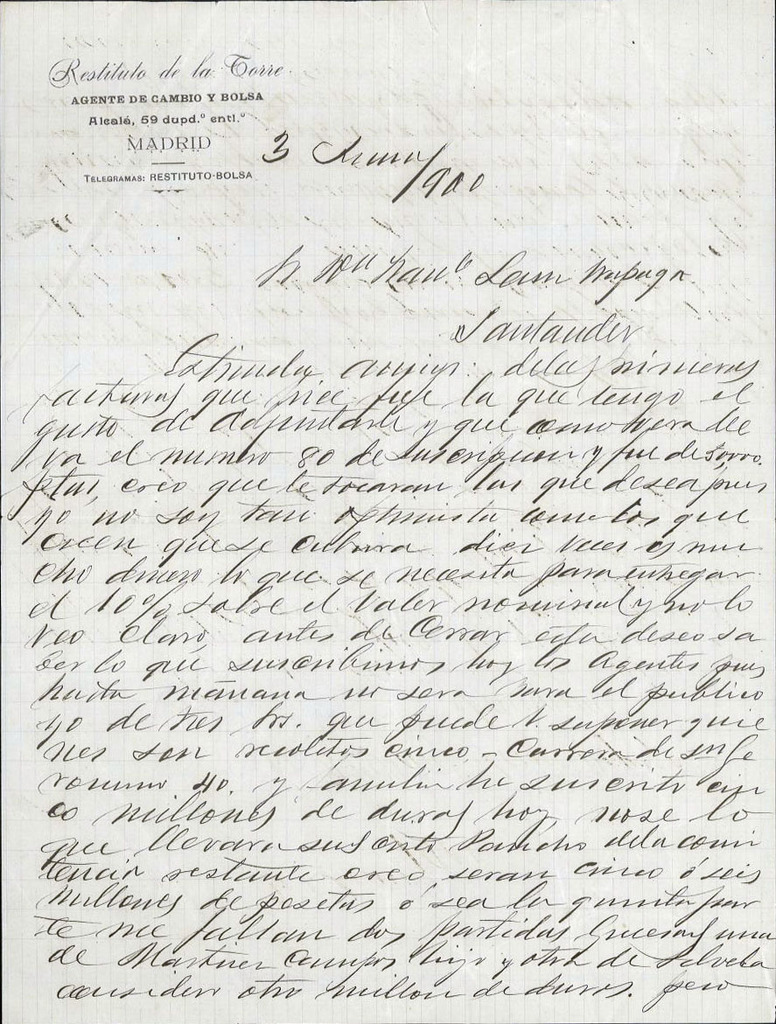 Restituto de la Torre
AGENTE DE CAMBIO Y BOLSA
Alcalá, 59 dupd.º entl.º
MADRID
TELEGRAMAS: RESTITUTO-BOLSA
3 /900
Sr Dn
Santander
de las primeras
facturas que hice fue la que tengo el
gusto de adjuntarle y que como vera lle
va el numero 80 de suscripcion y fue de
ptas, creo que le tocaran las que desea pues
yo no soy tan optimista como los que
creen que se cubrira diez veces es mu
cho dinero lo que se necesita para entregar
el 10% sobre el valor nominal y no lo
veo claro, antes de cerrar esta deseo sa
ber lo que suscribimos hoy los Agentes pues
hasta mañana no sera para el publico
yo de tres Srs. que puede V. suponer quie
nes son recoletos cinco - Carrera de Sn Ge
ronimo 40. y he suscrito cin
co millones de duros hoy, no se lo
que llevara suscrito Pancho de la
restante creo seran cinco ó seis
millones de pesetas ó sea la quinta par
te me faltan dos partidas gruesas una
de Martinez Campos hijo y otra de Silvela
considero otro millon de duros. pero